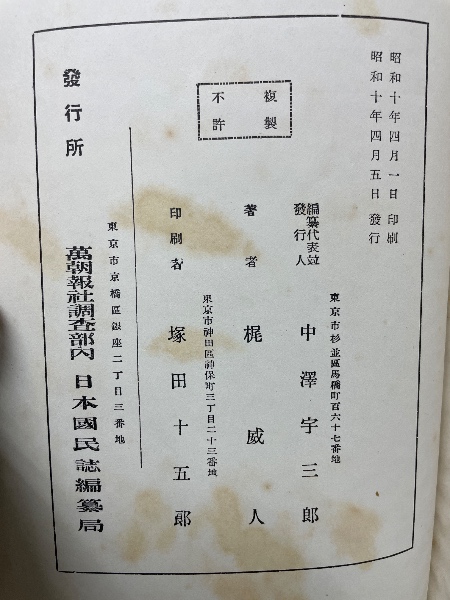 昭和十年四月一日 印刷
昭和十年四月五日 發行
複製
不許
編纂代表竝
發行人
東京市杉並區馬橋町百六十七番地
中澤宇三郎
著者
梶威人
東京市神田區神保町三丁目二十三番地
印刷者
塚田十五郎
東京市京橋區銀座二丁目三番地
發行所
萬朝報社調査部內 日本國民誌編纂局